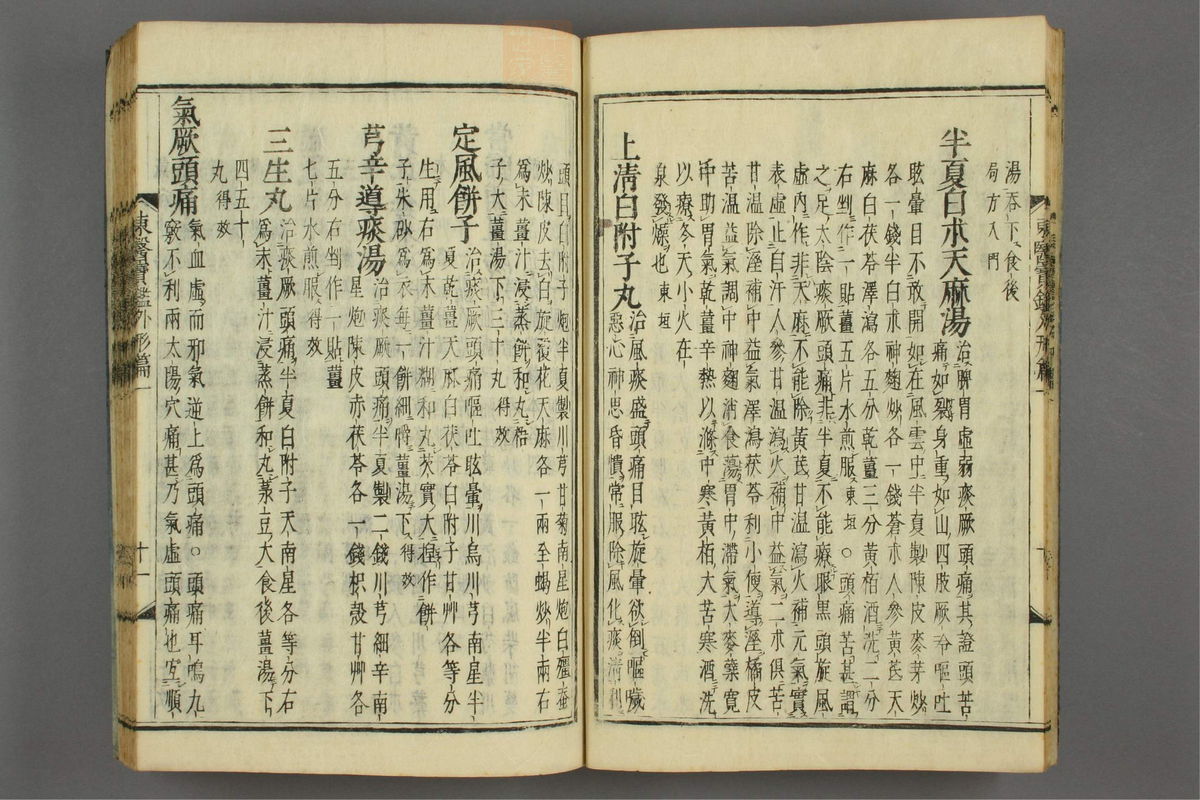 湯呑下食後
局方入門
半夏白朮天麻湯
治脾胃虛弱痰厥頭痛其證頭苦
痛如裂身重如山四肢厥冷嘔吐
眩暈目不敢開如在風雲中半夏製陳皮麥芽炒
各一錢半白朮神麴炒各一錢蒼朮人參黃芪天
麻白茯苓澤瀉各五分乾薑三分黃栢酒洗二分
右剉作一貼薑五片水煎服東垣○頭痛苦甚謂
之足太陰痰厥頭痛非半夏不能療眼黑頭旋風
虛內作非天麻不能除黃芪甘温瀉火補元氣實
表虛止自汗人參甘温瀉火補中益氣二朮俱苦
甘温除溼補中益氣澤瀉茯苓利小便導溼橘皮
苦温益氣調中神麴消食蕩胃中滯氣大麥蘖寛
中助胃氣乾薑辛熱以滌中寒黃栢大苦寒酒洗
以療冬天小火在
泉發燥也東垣
上清白附子丸
治風痰盛頭痛目眩旋暈欲倒嘔噦
惡心神思昏憒常服除風化痰清利
頭目白附子炮半夏製川芎甘菊南星炮白殭蚕
炒陳皮去白旋復花天麻各一兩全蝎炒半兩右
爲末薑汁浸蒸餅和丸梧
子大薑湯下三十丸得效
定風餅子
治痰厥頭痛嘔吐眩暈川烏川芎南星半
夏乾薑天麻白茯苓白附子甘艸各等分
生用右爲末薑汁糊和丸芡實大捏作餅
子朱砂爲衣每一餅細嚼薑湯下得效
芎辛導痰湯
治痰厥頭痛半夏製二錢川芎細辛南
星炮陳皮赤茯苓各一錢枳殼甘艸各
五分右剉作一貼薑
七片水煎服得效
三生丸
治痰厥頭痛半夏白附子天南星各等分右
爲末薑汁浸蒸餅和丸菉豆大食後薑湯下
四五十
丸得效
氣厥頭痛
氣血虛而邪氣逆上爲頭痛○頭痛耳鳴九
竅不利兩太陽穴痛甚乃氣虛頭痛也宜順
東醫寶鑑外形篇一
十一
東醫寶鑑外形篇一